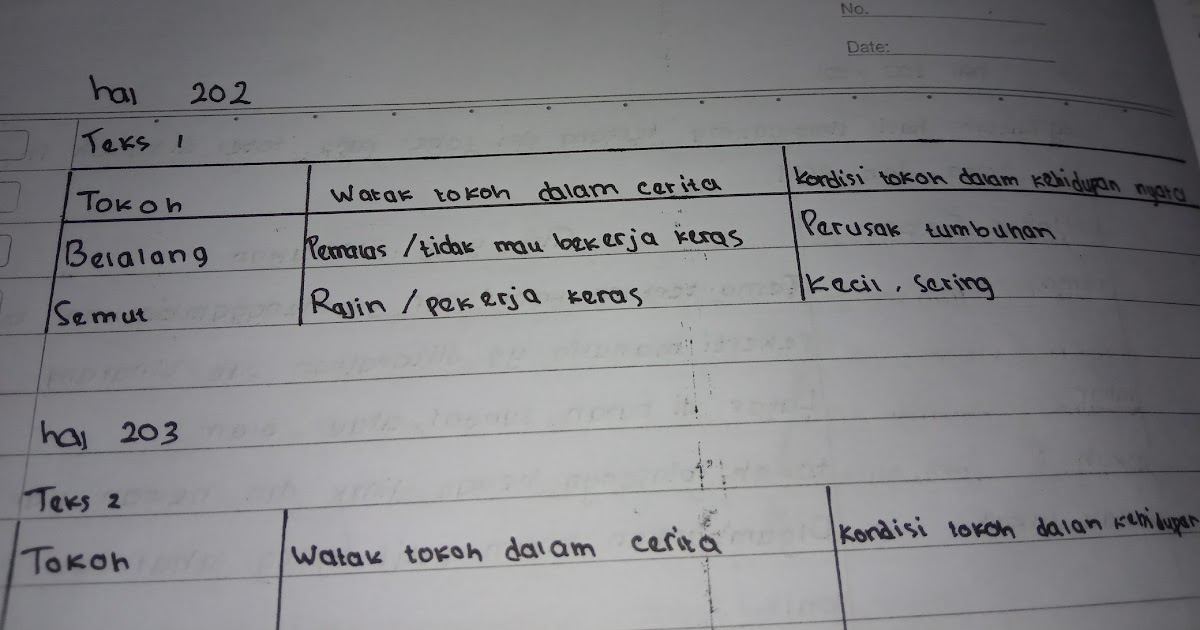 No.
Date:
hal 202
Teks 1
Tokoh Watak tokoh dalam cerita Kondisi tokoh dalam kehidupan nyata
Belalang Pemalas / tidak mau bekerja keras Perusak tumbuhan
Semut Rajin / pekerja keras Kecil, sering
hal 203
Teks 2
Tokoh Watak tokoh dalam cerita Kondisi tokoh dalan kehidupan